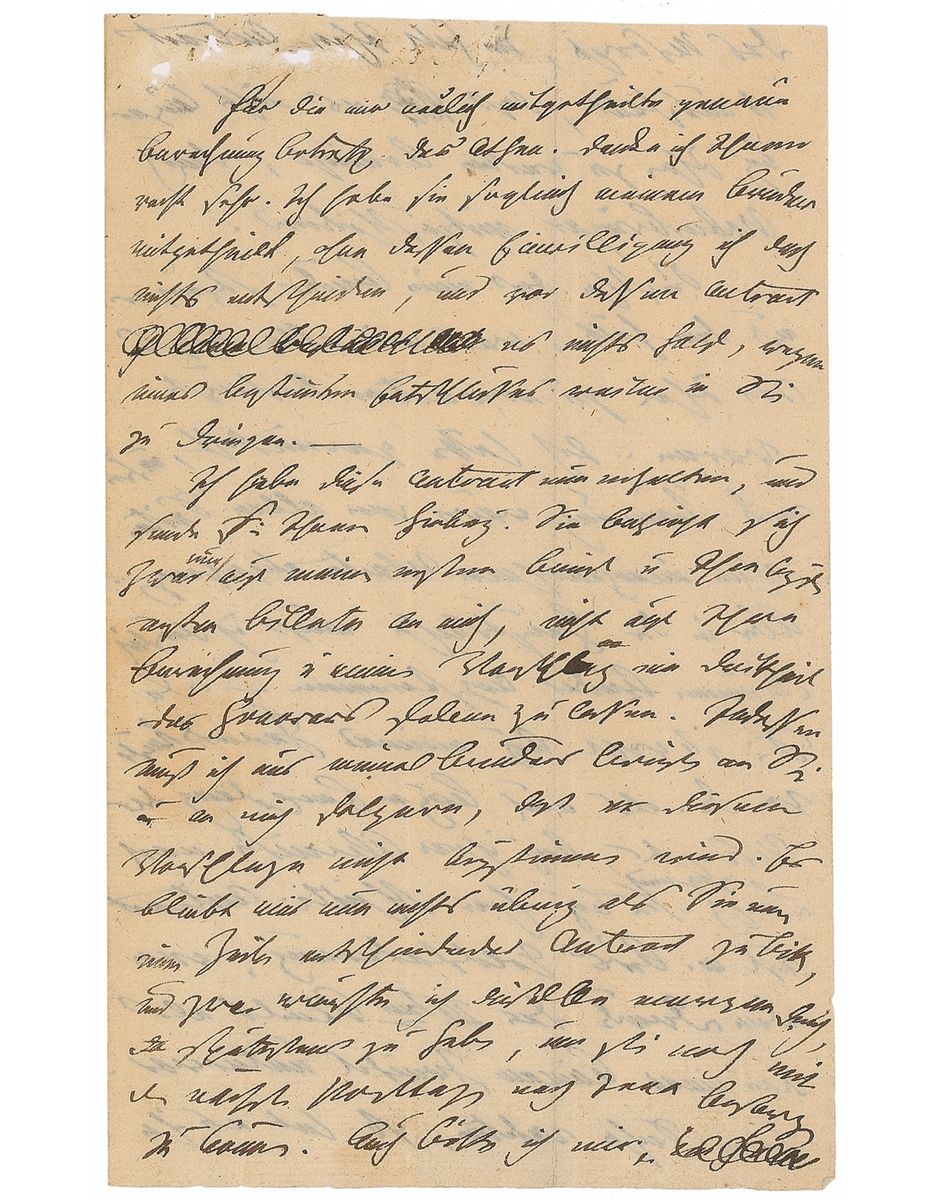 Für die mir neulich mitgetheilte genaue
Berechnung betreff. des Athen. danke ich Ihnen
recht sehr. Ich habe sie sogleich meinem Bruder
mitgetheilt, ohne dessen Einwilligung ich doch
nichts entscheiden, und vor dessen Antwort
es nichts half, wegen
eines bestimten Entschlusses weiter in Sie
zu dringen. —
Ich habe diese Antwort nun erhalten, und
sende Sie Ihnen hiebey. Sie bezieht sich
zwar nur auf meinen ersten Brief u Ihre beyden
ersten Billete an mich, nicht auf Ihre
Berechnung u meinen Vorschlag ein Drittheil
des Honorars fahren zu lassen. Indessen
muß ich aus meines Bruders Briefe an Sie
u an mich folgern, daß er diesem
Vorschlage nicht beystimmen wird. Es
bleibt mir nun nichts übrig als Sie um
eine Zeile entscheidender Antwort zu bitten,
und zwar wünschte ich dieselbe morgen früh,
spätestens zu haben, um sie noch mit
dem nächsten Posttage nach Jena
zu können. Auch bitte ich mir